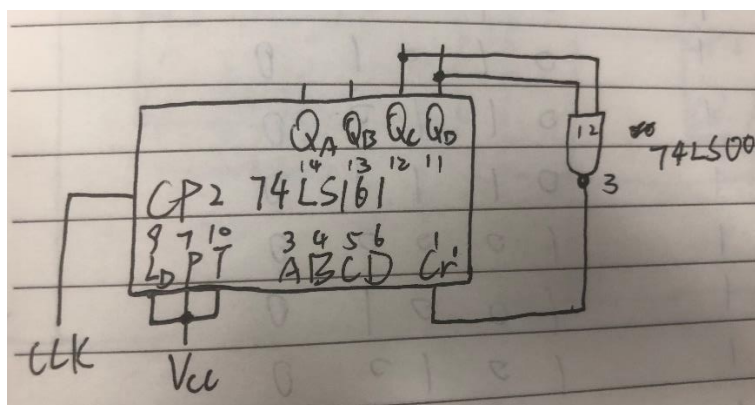 QA QB QC QD
14 13 12 11
12
74LS00
3
CP2 74LS161
9 7 10 3 4 5 6 1
LD P T A B C D Cr
CLK
Vcc